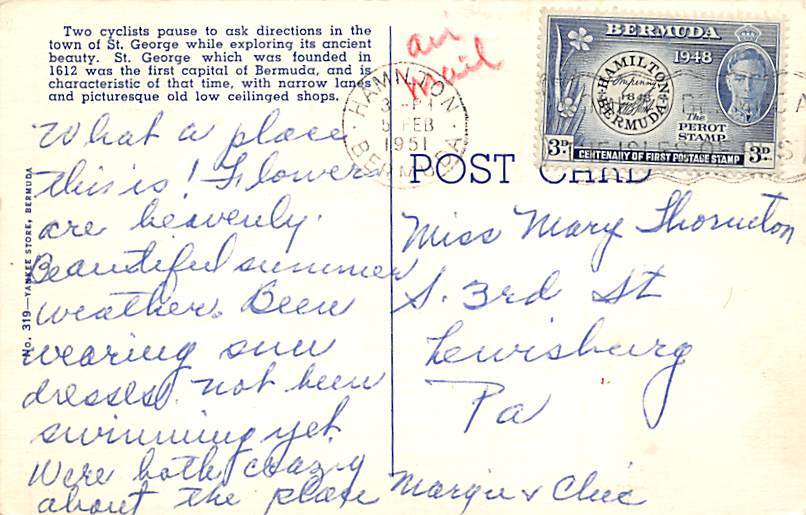 Two cyclists pause to ask directions in the
town of St. George while exploring its ancient
beauty. St. George which was founded in
1612 was the first capital of Bermuda, and is
characteristic of that time, with narrow lanes
and picturesque old low ceilinged shops.
air
mail
HAMILTON
5 FEB
1951
BERMUDA
BERMUDA
1948
HAMILTON
BERMUDA
The
PEROT
STAMP
3D
CENTENARY OF FIRST POSTAGE STAMP
3D
POST CARD
No. 319—YANKEE STORE, BERMUDA
What a place
this is! Flowers
are heavenly.
Beautiful summer
weather. Been
wearing sun
dresses. not been
swimming yet.
Were both crazy
about the place
Margie & Chic
Miss Mary Thornton
S. 3rd St
Lewisburg
Pa